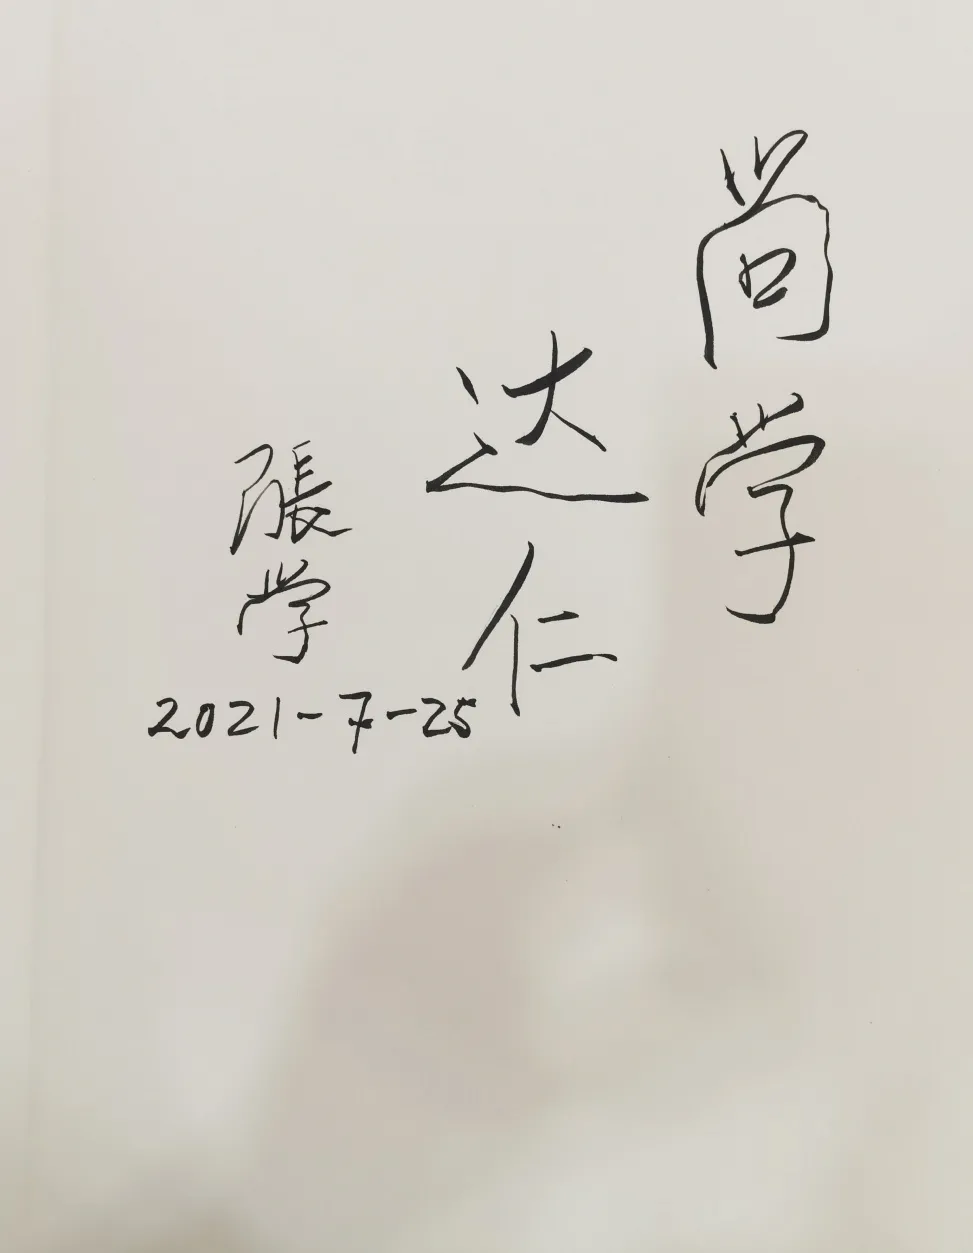 尚学
达仁
張学
2021-7-25